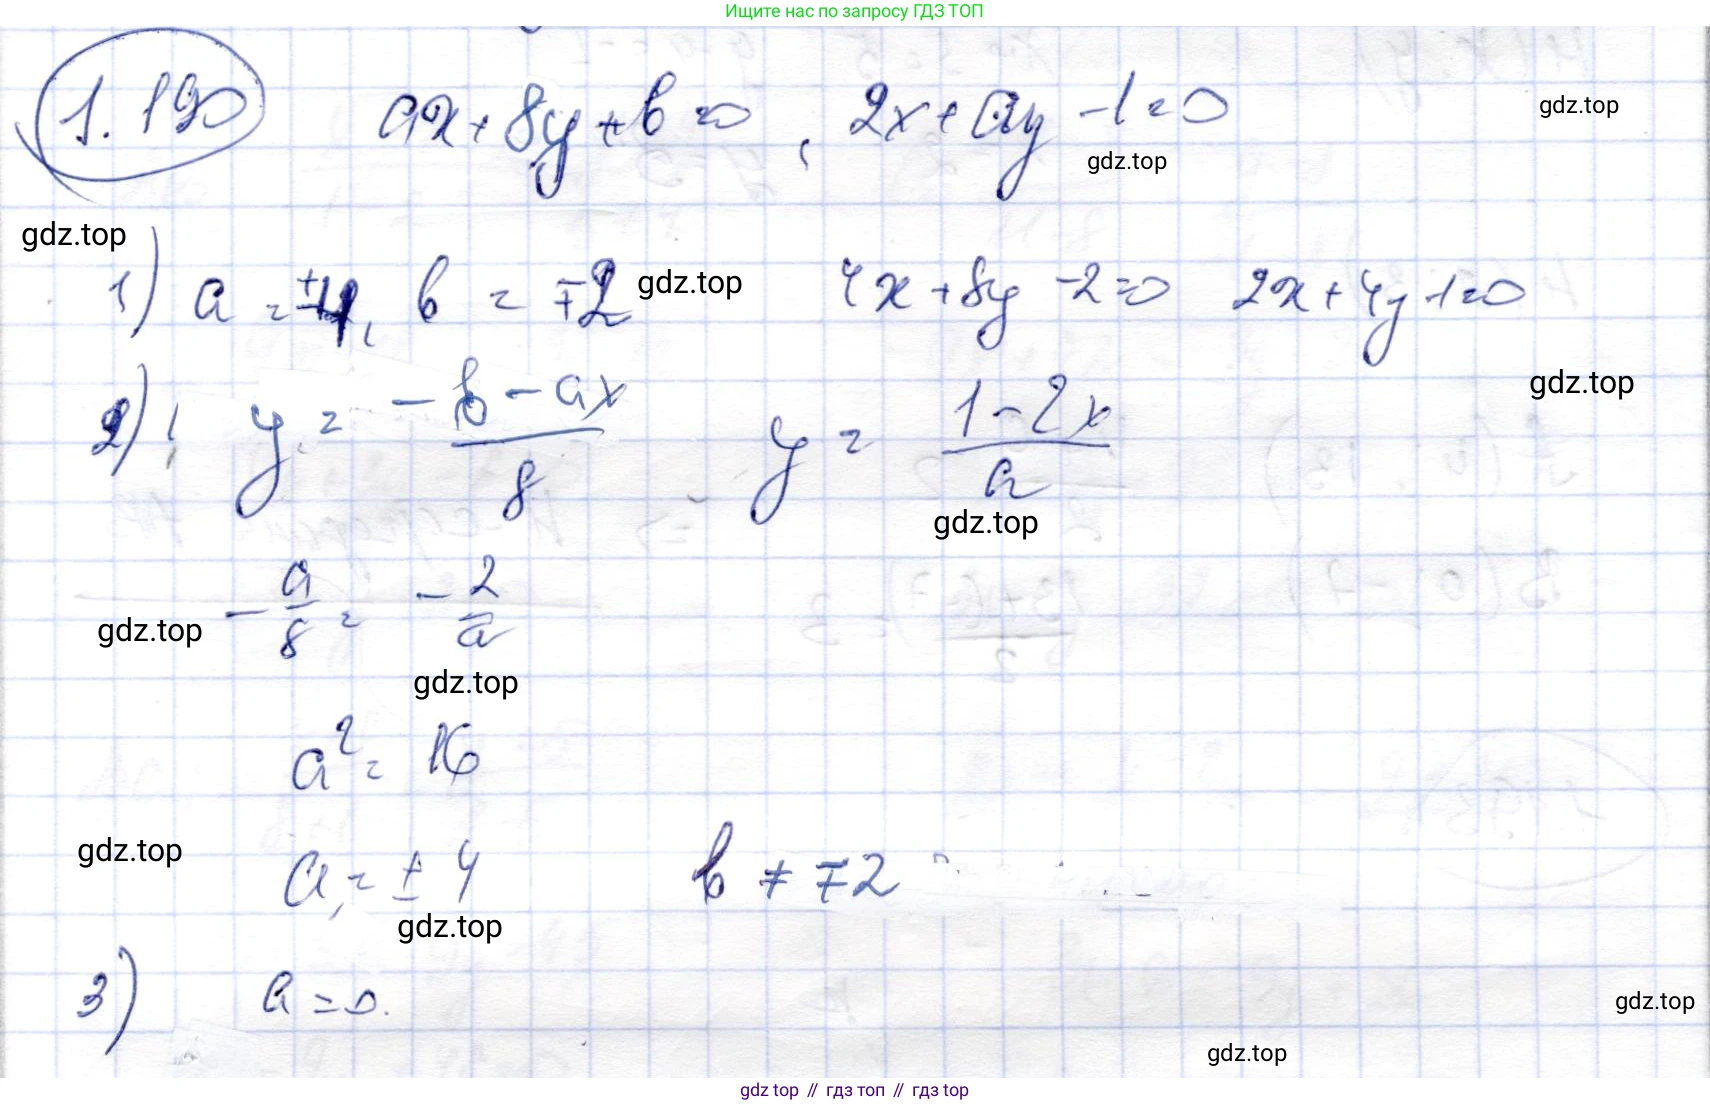 Ищите нас по запросу ГДЗ ТОП
1.190 ax + 8y + b = 0, 2x + ay - 1 = 0
gdz.top
gdz.top
gdz.top
1) a = ±4, b = ∓2 gdz.top 4x + 8y - 2 = 0 2x + 4y - 1 = 0
gdz.top
2) y = (-b - ax)/8 y = (1 - 2x)/a
gdz.top
-a/8 = -2/a
gdz.top
gdz.top
a² = 16
gdz.top
a = ±4 b ≠ ∓2
gdz.top
3) a = 0.
gdz.top
gdz.top
gdz top // гдз топ // гдз top